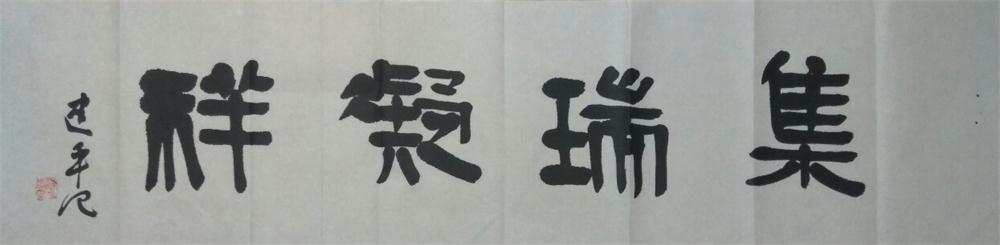 集瑞凝祥
建平记